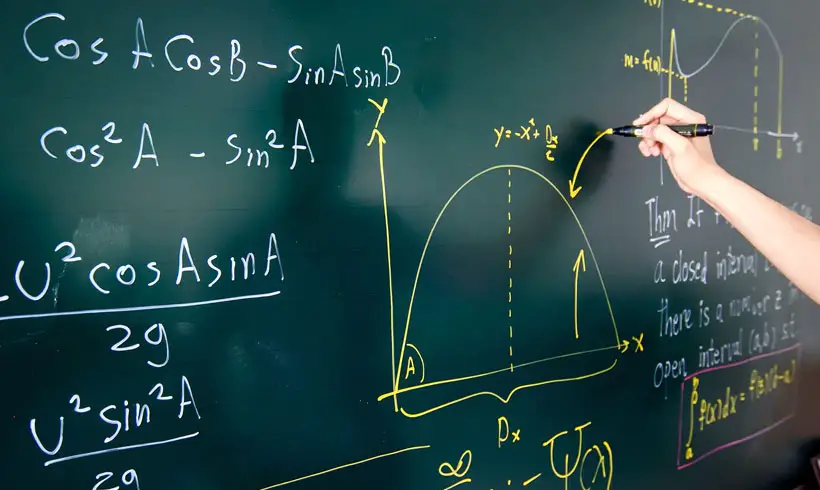 Cos A CosB - SinAsinB
Cos² A - Sin² A
U² cosAsinA
2g
U² Sin² A
2g
Y
y = -x² +
A
X
Dx
∞
- Ψ(x)
m = f(u)
Thm If
a closed interval
there is a number z
open interval (a,b) s.t.
∫ₐᵇ f(x)dx = f(z)(b-a)